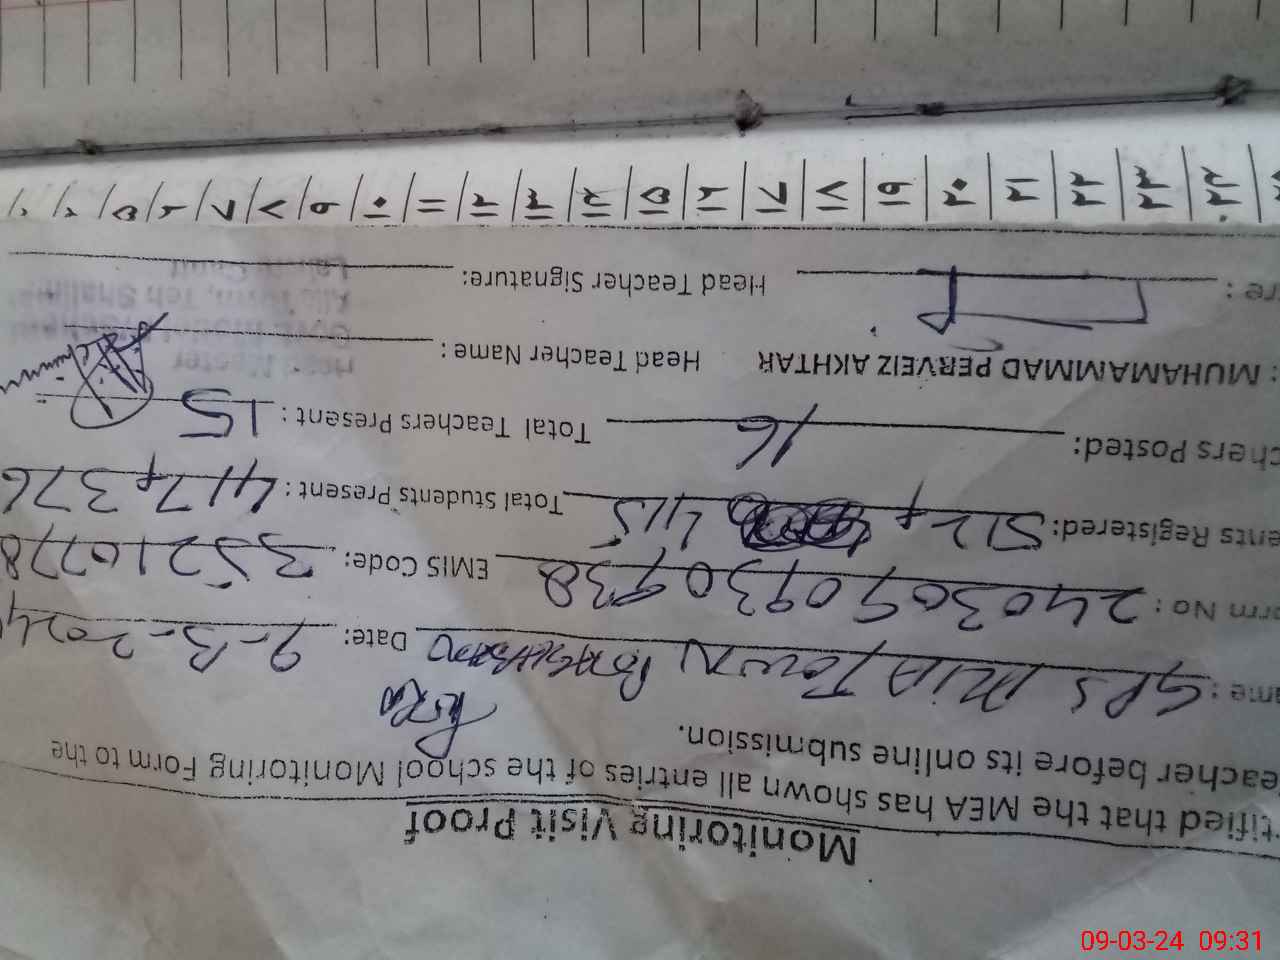 Monitoring Visit Proof
tified that the MEA has shown all entries of the school Monitoring Form to the
eacher before its online submission.
ame : GPS MIA Town Date: 9-3-2024
orm No : 240309 0930 938 EMIS Code: 35210778
ents Registered: 512 + 415 Total Students Present : 417 + 376
chers Posted: 16 Total Teachers Present : 15
: MUHAMAMMAD PERVEIZ AKHTAR Head Teacher Name :
re : Head Teacher Signature:
Head Master
۵ ۶ ۷ ۸ ۹ ۱۰ ۱۱ ۱۲ ۱۳ ۱۴ ۱۵ ۱۶ ۱۷ ۱۸ ۱۹ ۲۰ ۲۱ ۲۲ ۲۳ ۲۴
09-03-24 09:31